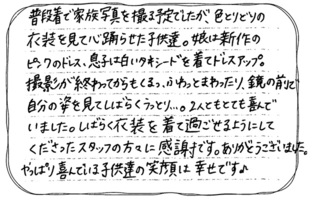 普段着で家族写真を撮る予定でしたが、色とりどりの
衣装を見て心踊らせた子供達。娘は新作の
ピンクのドレス、息子は白いタキシードを着てドレスアップ。
撮影が終わってからもくるっ、ふわっとまわったり、鏡の前で
自分の姿を見てしばらくうっとり…。2人もとても喜んで
いました。しばらく衣装を着て過ごせるようにして
くださったスタッフの方々に感謝です。ありがとうございました。
やっぱり喜んでいる子供達の笑顔は幸せです♪